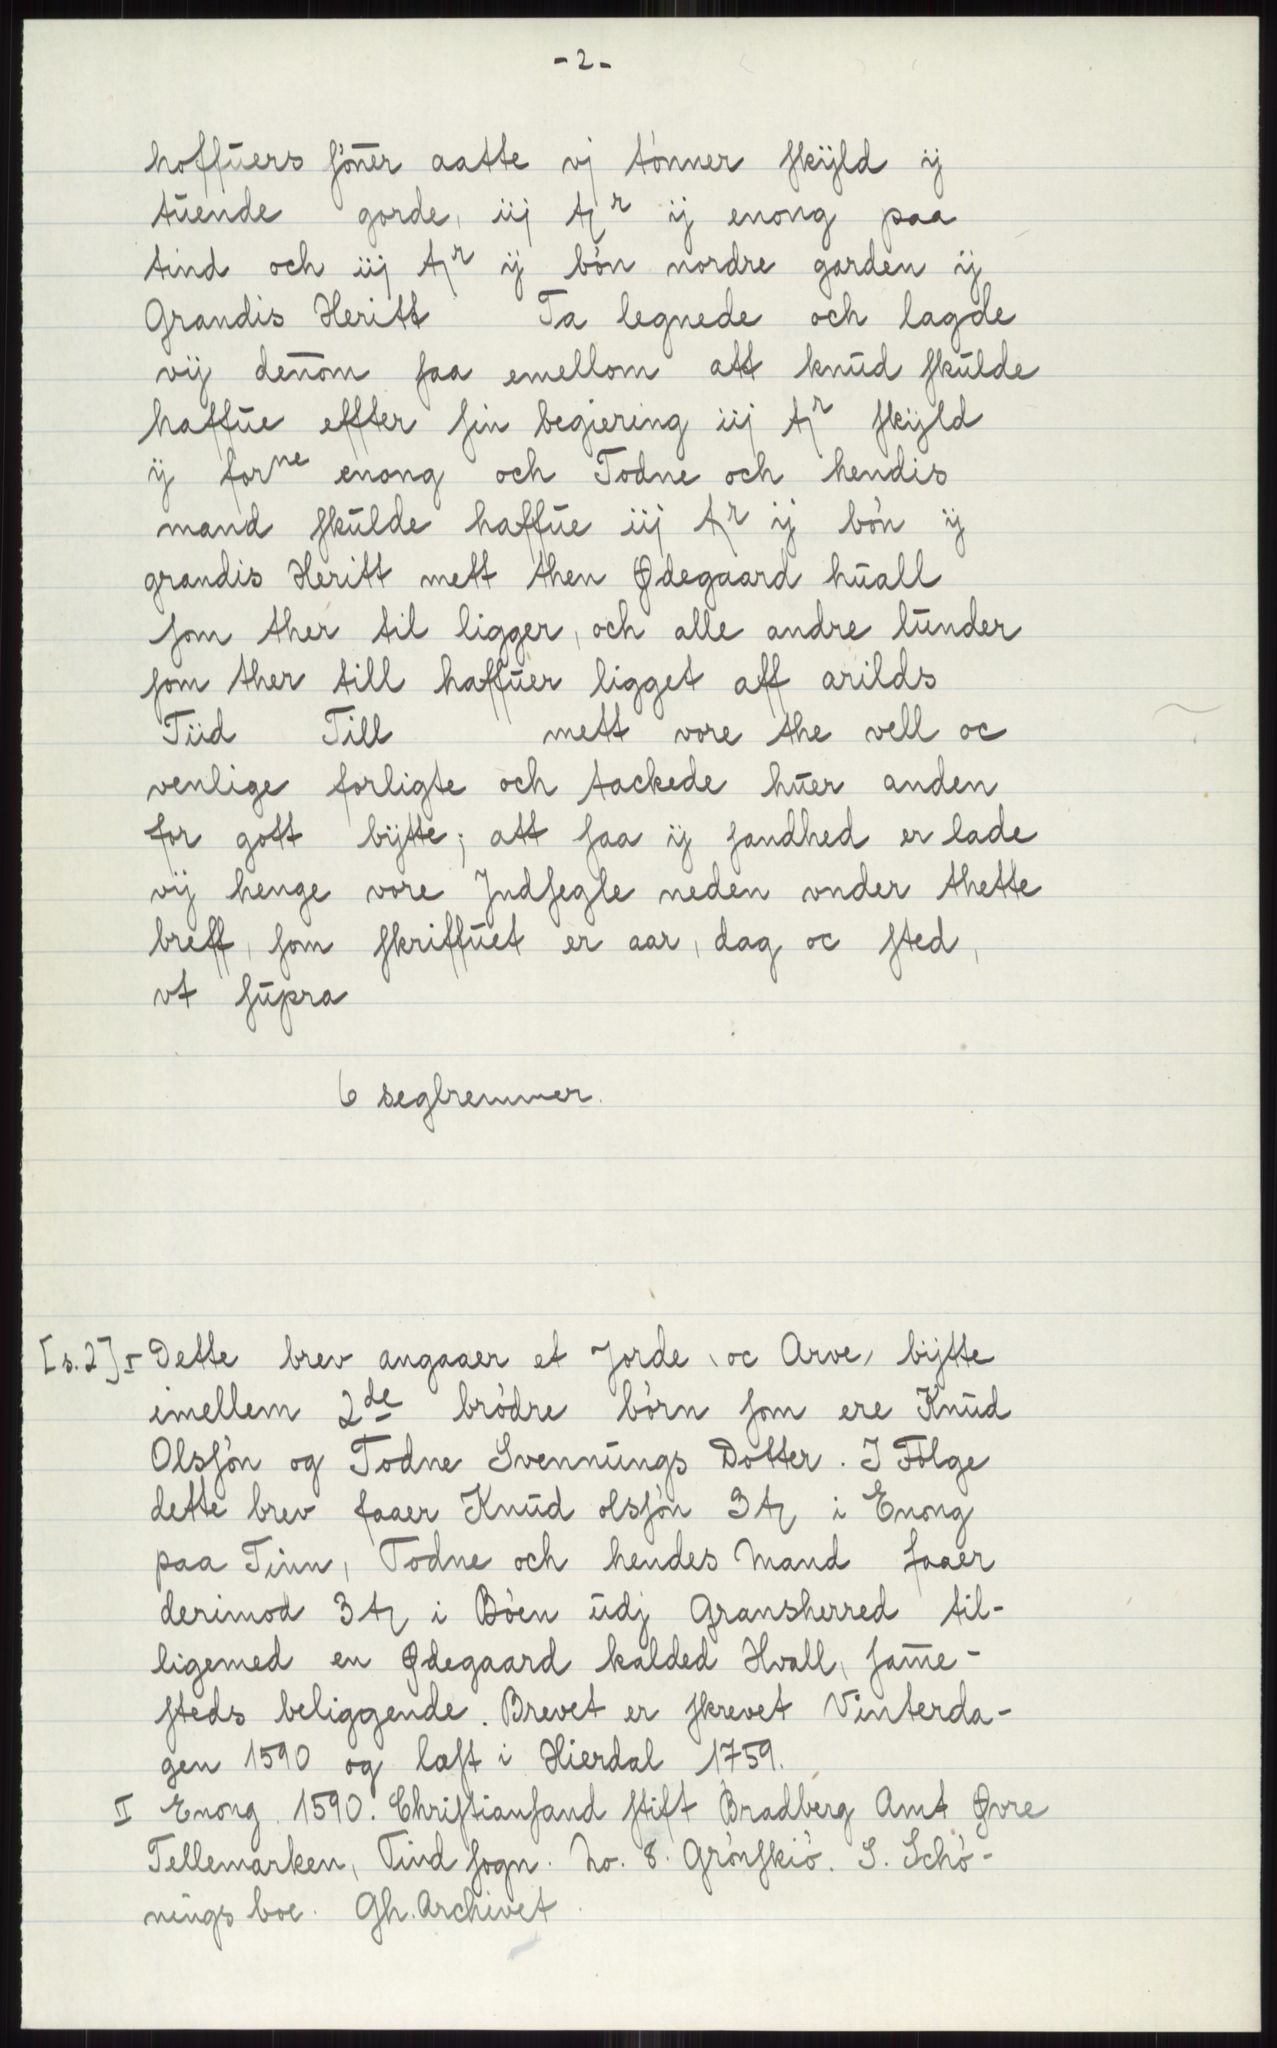 -2-
hoffuers sóner aatte vj tónner skÿld ÿ
tuende gorde, iij tr ÿ enong paa
tind och iij tr ÿ bón nordre garden ÿ
Grandis Heritt Ta legnede och lagde
vij denom saa emellom att knud skulde
haffue effter sin begiering iij tr skÿld
ÿ forne enong och Todne och hendis
mand skulde haffue iij tr ÿ bón ÿ
grandis Heritt mett then Ødegaard huall
som ther til ligger, och alle andre lunder
som ther till haffuer ligget aff arilds
Tiid Till mett vore the vell oc
venlige forligte och tackede huer anden
for gott bÿtte; att saa ÿ sandhed er lade
vij henge vore Jndsegle neden vnder thette
breff, som skriffuet er aar, dag oc sted,
vt supra
6 seglremmer.
[s.2] I Dette brev angaaer et Jorde, oc Arve, bÿtte
imellem 2de bródre bórn som ere Knud
Olssón og Todne Svennungs Dotter. I Fólge
dette brev faaer Knud olssón 3 t i Enong
paa Tinn, Todne och hendes Mand faaer
derimod 3 t i Bóen udj Gransherred til-
ligemed en Ødegaard kalded Hvall, samme-
steds beliggende. Brevet er skrevet Vinterda-
gen 1590 og læst i Hierdal 1759.
II Enong. 1590. Christiansand stift Bradberg Amt Øvre
Tellemarken, Tind sogn. No. 8. Grónskió. S. Schó-
nings boe. Gh. Archivet.